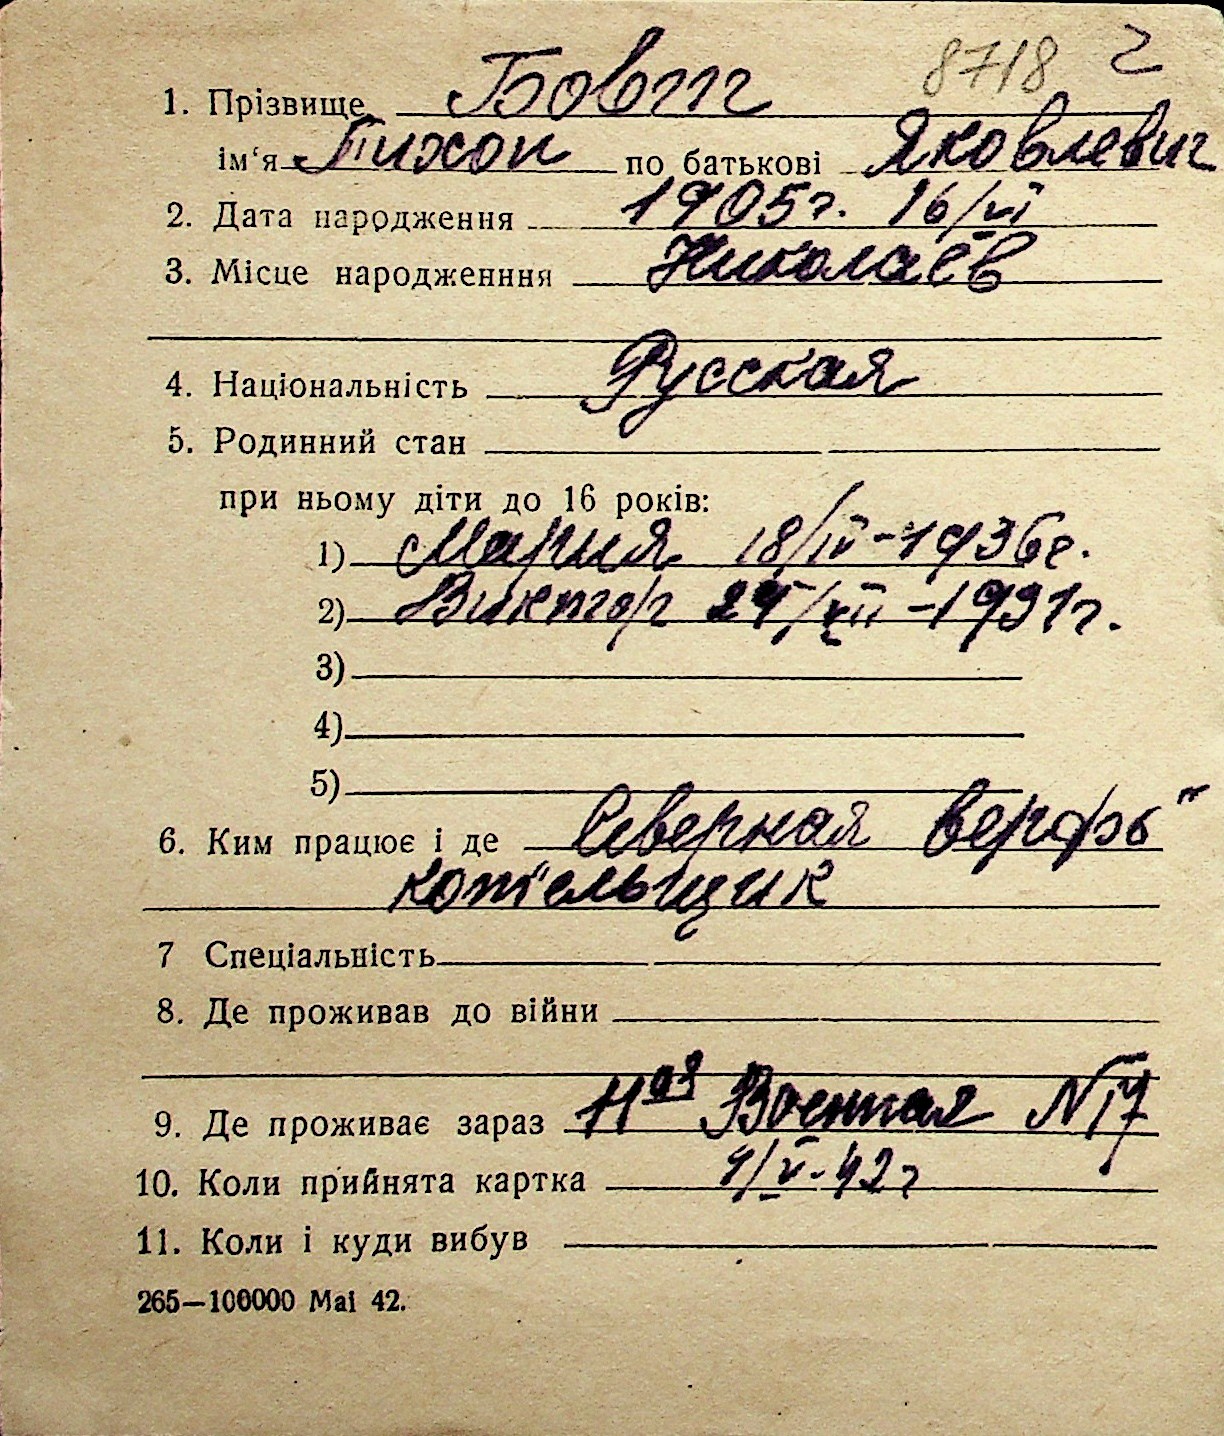 8718 2
1. Прізвище Бовт
ім‘я Тихон по батькові Яковлевич
2. Дата народження 1905г. 16/VI
3. Місце народженння Николаев
4. Національність Русская
5. Родинний стан
при ньому діти до 16 років:
1) Мария 18/IV-1936г.
2) Виктор 24/XII-1931г.
3)
4)
5)
6. Ким працює і де Северная верфь"
котельщик
7 Спеціальність
8. Де проживав до війни
9. Де проживає зараз 11ая Военная N 17
10. Коли прийнята картка 4/V-42г
11. Коли і куди вибув
265—100000 Mai 42.